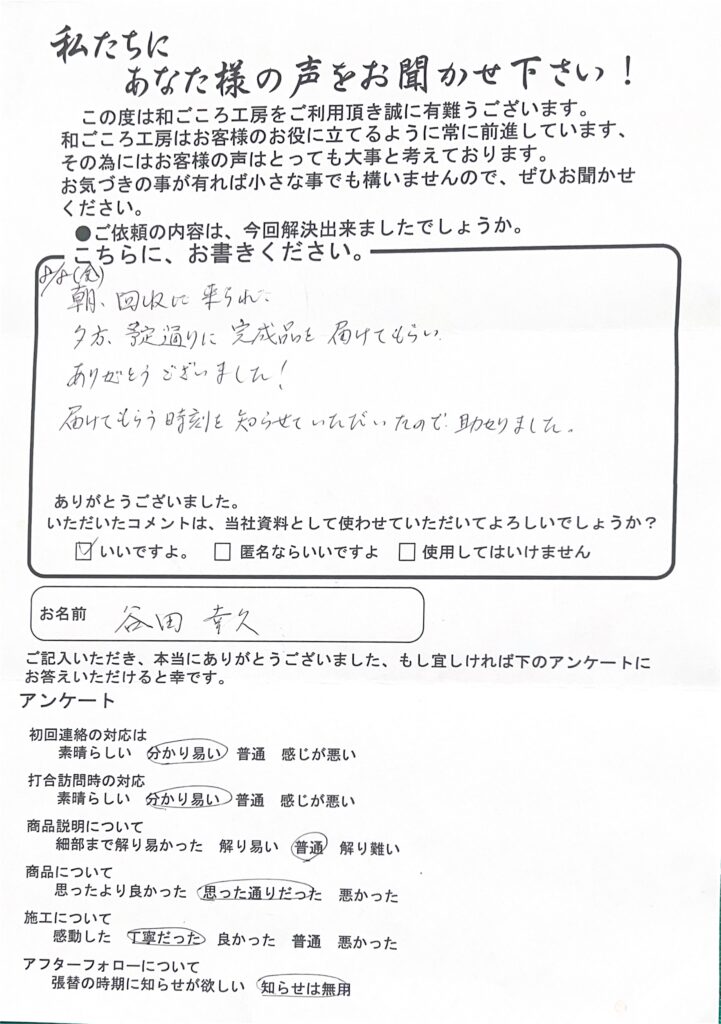 私たちに
あなた様の声をお聞かせ下さい！
この度は和ごころ工房をご利用頂き誠に有難うございます。
和ごころ工房はお客様のお役に立てるように常に前進しています、
その為にはお客様の声はとっても大事と考えております。
お気づきの事が有れば小さな事でも構いませんので、ぜひお聞かせ
ください。
●ご依頼の内容は、今回解決出来ましたでしょうか。
こちらに、お書きください。
8/8(金)
朝、回収に来られ、
夕方、予定通りに完成品を届けてもらい
ありがとうございました！
届けてもらう時刻を知らせていただいたので助かりました。
ありがとうございました。
いただいたコメントは、当社資料として使わせていただいてよろしいでしょうか？
☑いいですよ。 □匿名ならいいですよ □使用してはいけません
お名前 谷田 幸久
ご記入いただき、本当にありがとうございました、もし宜しければ下のアンケートに
お答えいただけると幸です。
アンケート
初回連絡の対応は
素晴らしい 分かり易い 普通 感じが悪い
打合訪問時の対応
素晴らしい 分かり易い 普通 感じが悪い
商品説明について
細部まで解り易かった 解り易い 普通 解り難い
商品について
思ったより良かった 思った通りだった 悪かった
施工について
感動した 丁寧だった 良かった 普通 悪かった
アフターフォローについて
張替の時期に知らせが欲しい 知らせは無用